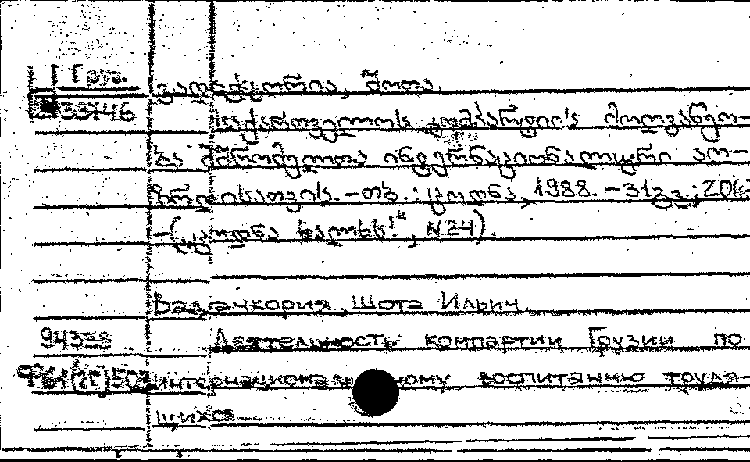 Груз.
ვადაჭკორია, შოთა.
საქართველოს კომპარტიის მოღვაწეო-
ბა მშრომელთა ინტერნაციონალური აღ-
ზრდისათვის. -თბ.: ცოდნა, 1988. -31გვ.; 20
-(ცოდნა ხალხს!", N24).
Вадачкория Шота Ильич.
Деятельность компартии Грузии по
интернациональному воспитанию трудя-
щихся